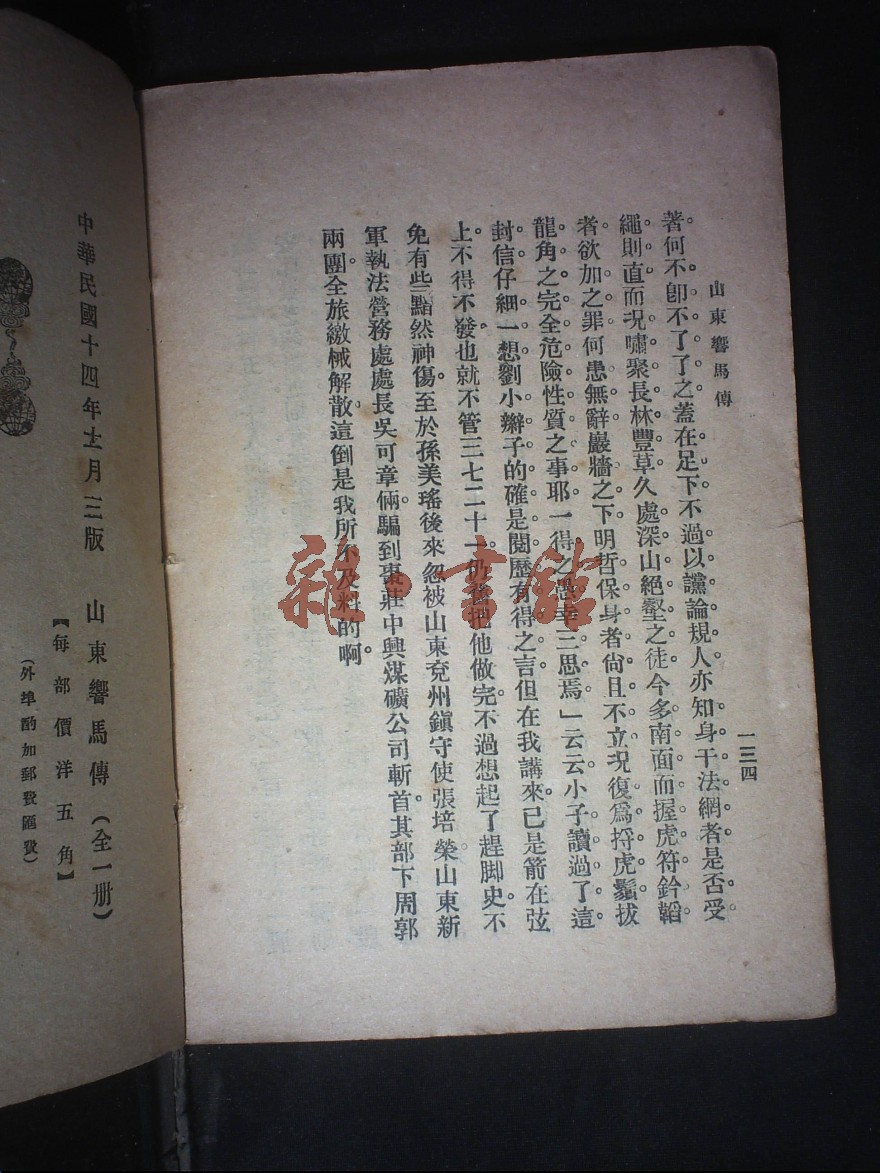 山東響馬傳
一三四
著何不卽不了了之蓋在足下不過以讜論規人亦知身干法網者是否受
繩則直而况嘯聚長林豐草久處深山絕壑之徒今多南面而握虎符鈐韜
者欲加之罪何患無辭巖牆之下明哲保身者尙且不立况復爲捋虎鬚拔
龍角之完全危險性質之事耶一得之愚幸三思焉」云云小子讀過了這
封信仔細一想劉小辮子的確是閱歷有得之言但在我講來已是箭在弦
上不得不發也就不管三七二十一仍舊把他做完不過想起了趕脚史不
免有些黯然神傷至於孫美瑤後來忽被山東兗州鎭守使張培榮山東新
軍執法營務處處長吳可章倆騙到棗莊中興煤礦公司斬首其部下周郭
兩團全旅繳械解散這倒是我所不及料的啊。
雜·書館
中華民國十四年十二月三版
山東響馬傳(全一册)
【每部價洋五角】
(外埠酌加郵費匯費)